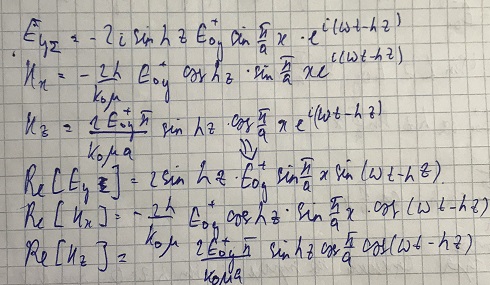 Ė_yΣ = -2i sin hz E⁺_oy sin π/a x · e^i(ωt-hz)
H_x = - 2h/k₀μ E⁺_oy cos hz · sin π/a x e^i(ωt-hz)
H_z = 2E⁺_oy π/k₀μa sin hz · cos π/a x e^i(ωt-hz)
⇓
Re[E_yΣ] = 2 sin hz · E⁺_oy sin π/a x sin(ωt-hz)
Re[H_x] = - 2h/k₀μ E⁺_oy cos hz · sin π/a x · cos(ωt-hz)
Re[H_z] = 2E⁺_oy π/k₀μa sin hz cos π/a cos(ωt-hz)